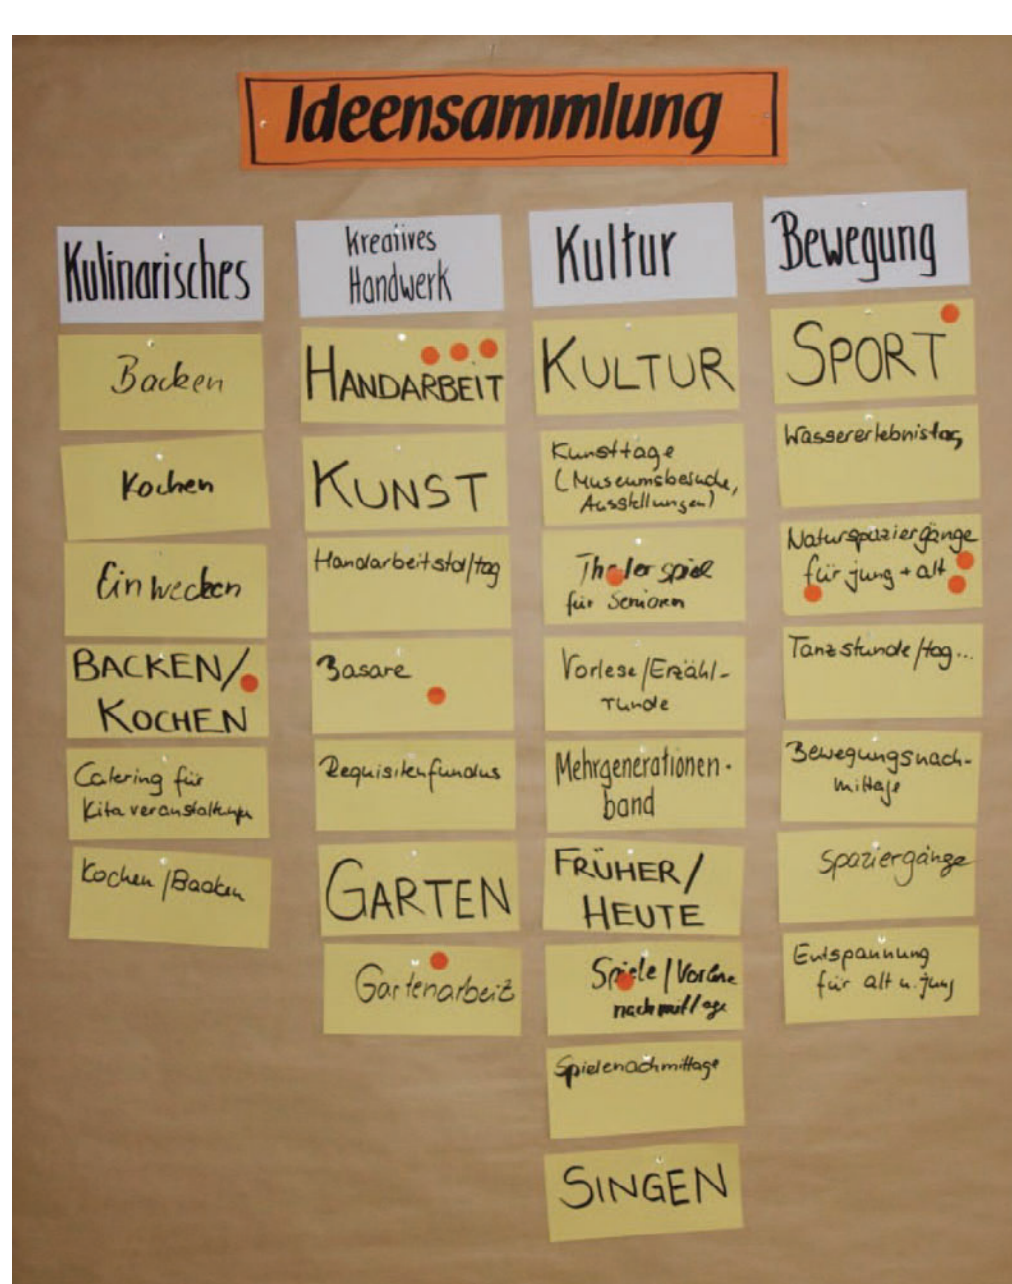 Ideensammlung
Kulinarisches
Backen
Kochen
Einwecken
BACKEN/
KOCHEN
Catering für
Kitaveranstaltungen
Kochen/Backen
Kreatives
Handwerk
HANDARBEIT
KUNST
Handarbeitstol/tag
Basare
Requisitenfundus
GARTEN
Gartenarbeit
Kultur
KULTUR
Kunsttage
(Museumsbesuche,
Ausstellungen)
Theaterspiel
für Senioren
Vorlese/Erzähl-
runde
Mehrgenerationen-
band
FRÜHER/
HEUTE
Spiele/Vorlese
nachmittage
Spielenachmittage
SINGEN
Bewegung
SPORT
Wassererlebnistag
Naturspaziergänge
für jung + alt
Tanzstunde/tag...
Bewegungsnach-
mittage
Spaziergänge
Entspannung
für alt u. jung